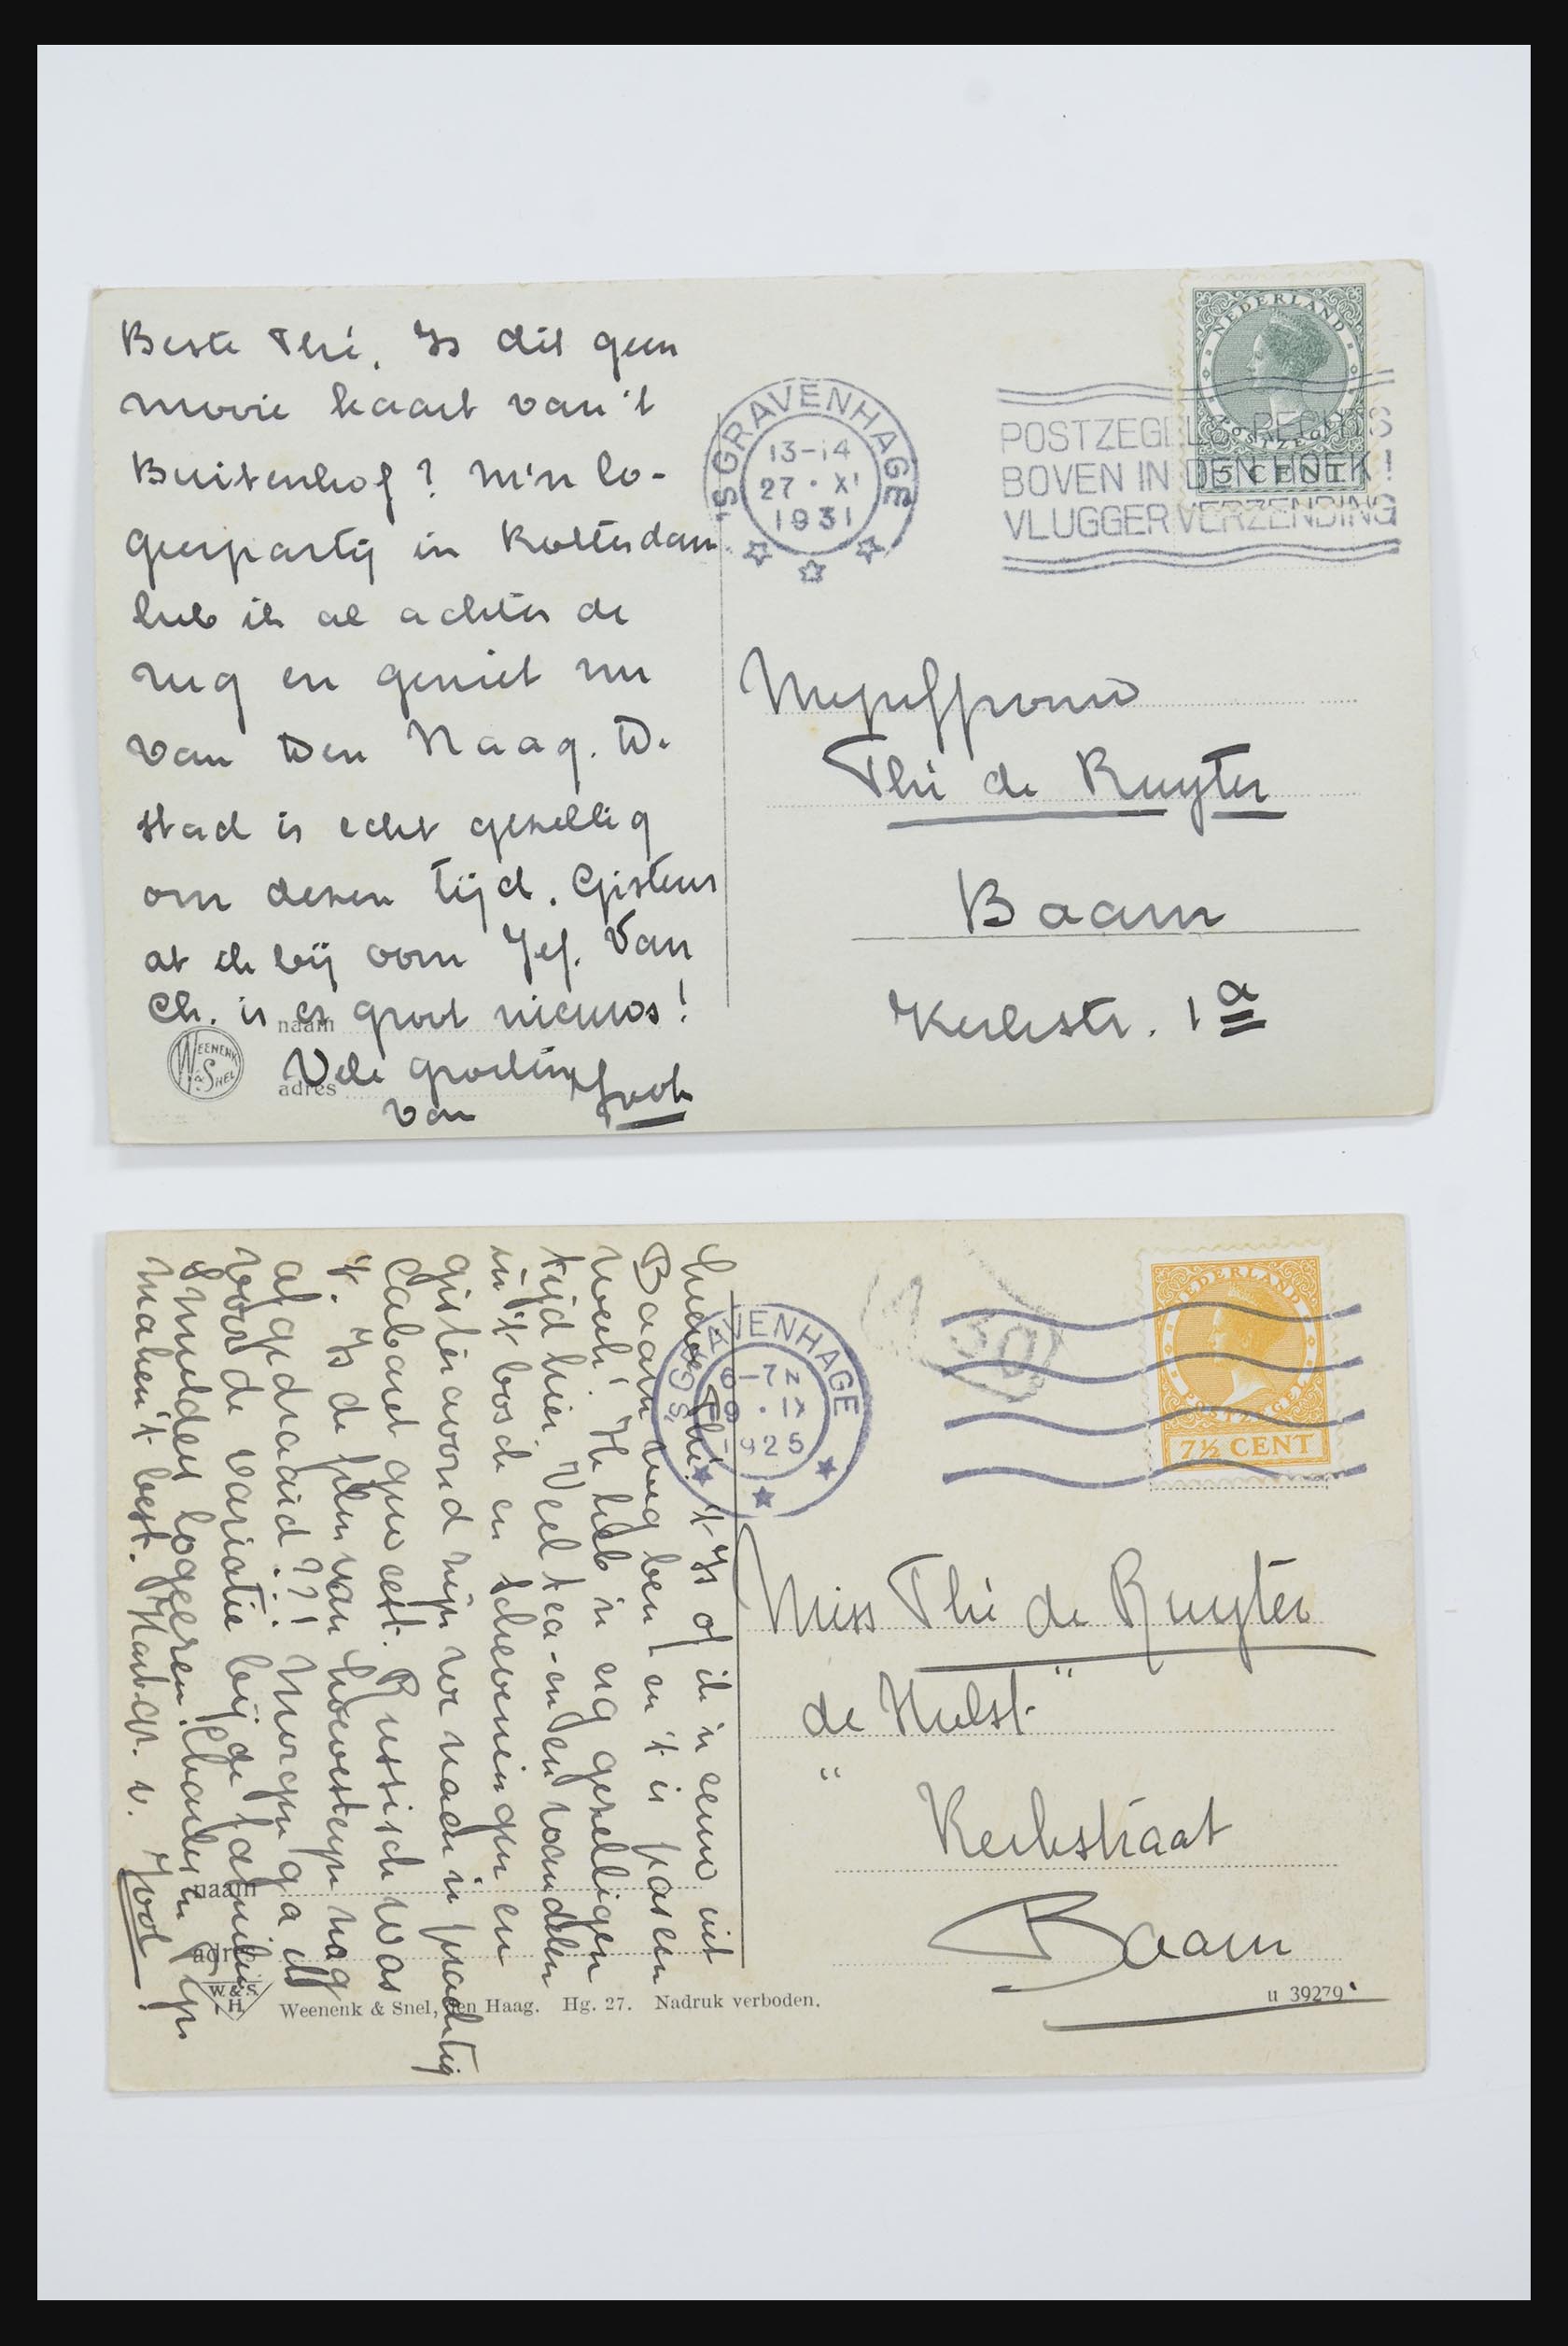 Beste Thé, Is dit geen
mooie kaart van 't
Buitenhof? M'n lo-
geerpartij in Rotterdam
heb ik al achter de
rug en geniet nu
van Den Haag. De
stad is echt gezellig
om dezen tijd. Gisteren
at ik bij oom Jef. Van
Ch. is er groot nieuws!
Vele groeten
van Jook
naam
adres
WEENENK & SNEL
'S GRAVENHAGE
13-14
27 · XI
1931
NEDERLAND
POSTZEGEL
5 CENT
POSTZEGELS RECHTS
BOVEN IN DEN HOEK!
VLUGGER VERZENDING
Mejuffrouw
Thé de Ruyter
Baarn
Kerkstr. 1a
Thé. 't Is of ik 'n eeuw uit
Baarn weg ben en 't is pas een
week! Ik heb 'n erg gezelligen
tijd hier. Veel tea-en en wandelen
in 't bosch en Scheveningen en
gisteravond zijn we naar 'n prachtig
Cabaret geweest. Russisch was
't. Is de film van hoevesteyn nog
afgedraaid??! Morgen ga ik
voor de variatie bij de familie
Smulders logeeren. Charles en
maken 't best. Hart. gr. v. Jook
naam
adres
W. & S.
H
Weenenk & Snel, den Haag. Hg. 27. Nadruk verboden.
u 39279
'S GRAVENHAGE
6-7 N
9 · IX
1925
NEDERLAND
POSTZEGEL
7½ CENT
Miss Thé de Ruyter
„de Hulst"
Kerkstraat
Baarn